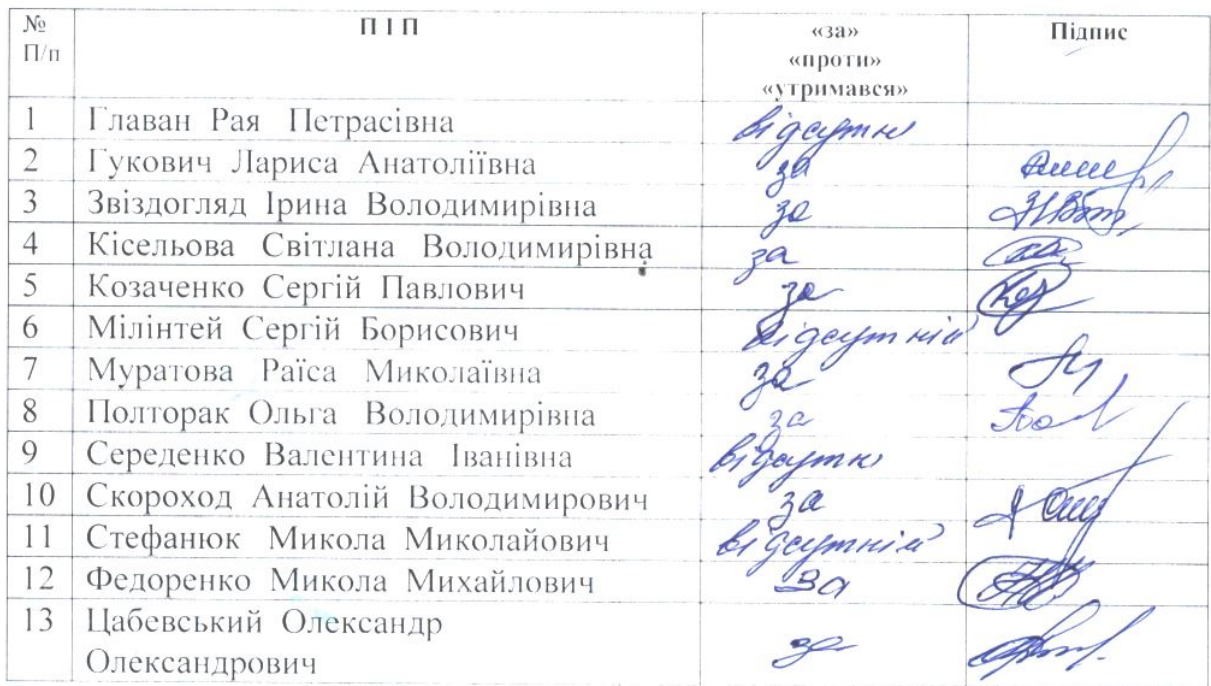 № П І П «за» Підпис
П/п «проти»
«утримався»
1 Главан Рая Петрасівна відсутня
2 Гукович Лариса Анатоліївна за
3 Звіздогляд Ірина Володимирівна за
4 Кісельова Світлана Володимирівна за
5 Козаченко Сергій Павлович за
6 Мілінтей Сергій Борисович відсутній
7 Муратова Раїса Миколаївна за
8 Полторак Ольга Володимирівна за
9 Середенко Валентина Іванівна відсутня
10 Скороход Анатолій Володимирович за
11 Стефанюк Микола Миколайович відсутній
12 Федоренко Микола Михайлович за
13 Цабевський Олександр
Олександрович за